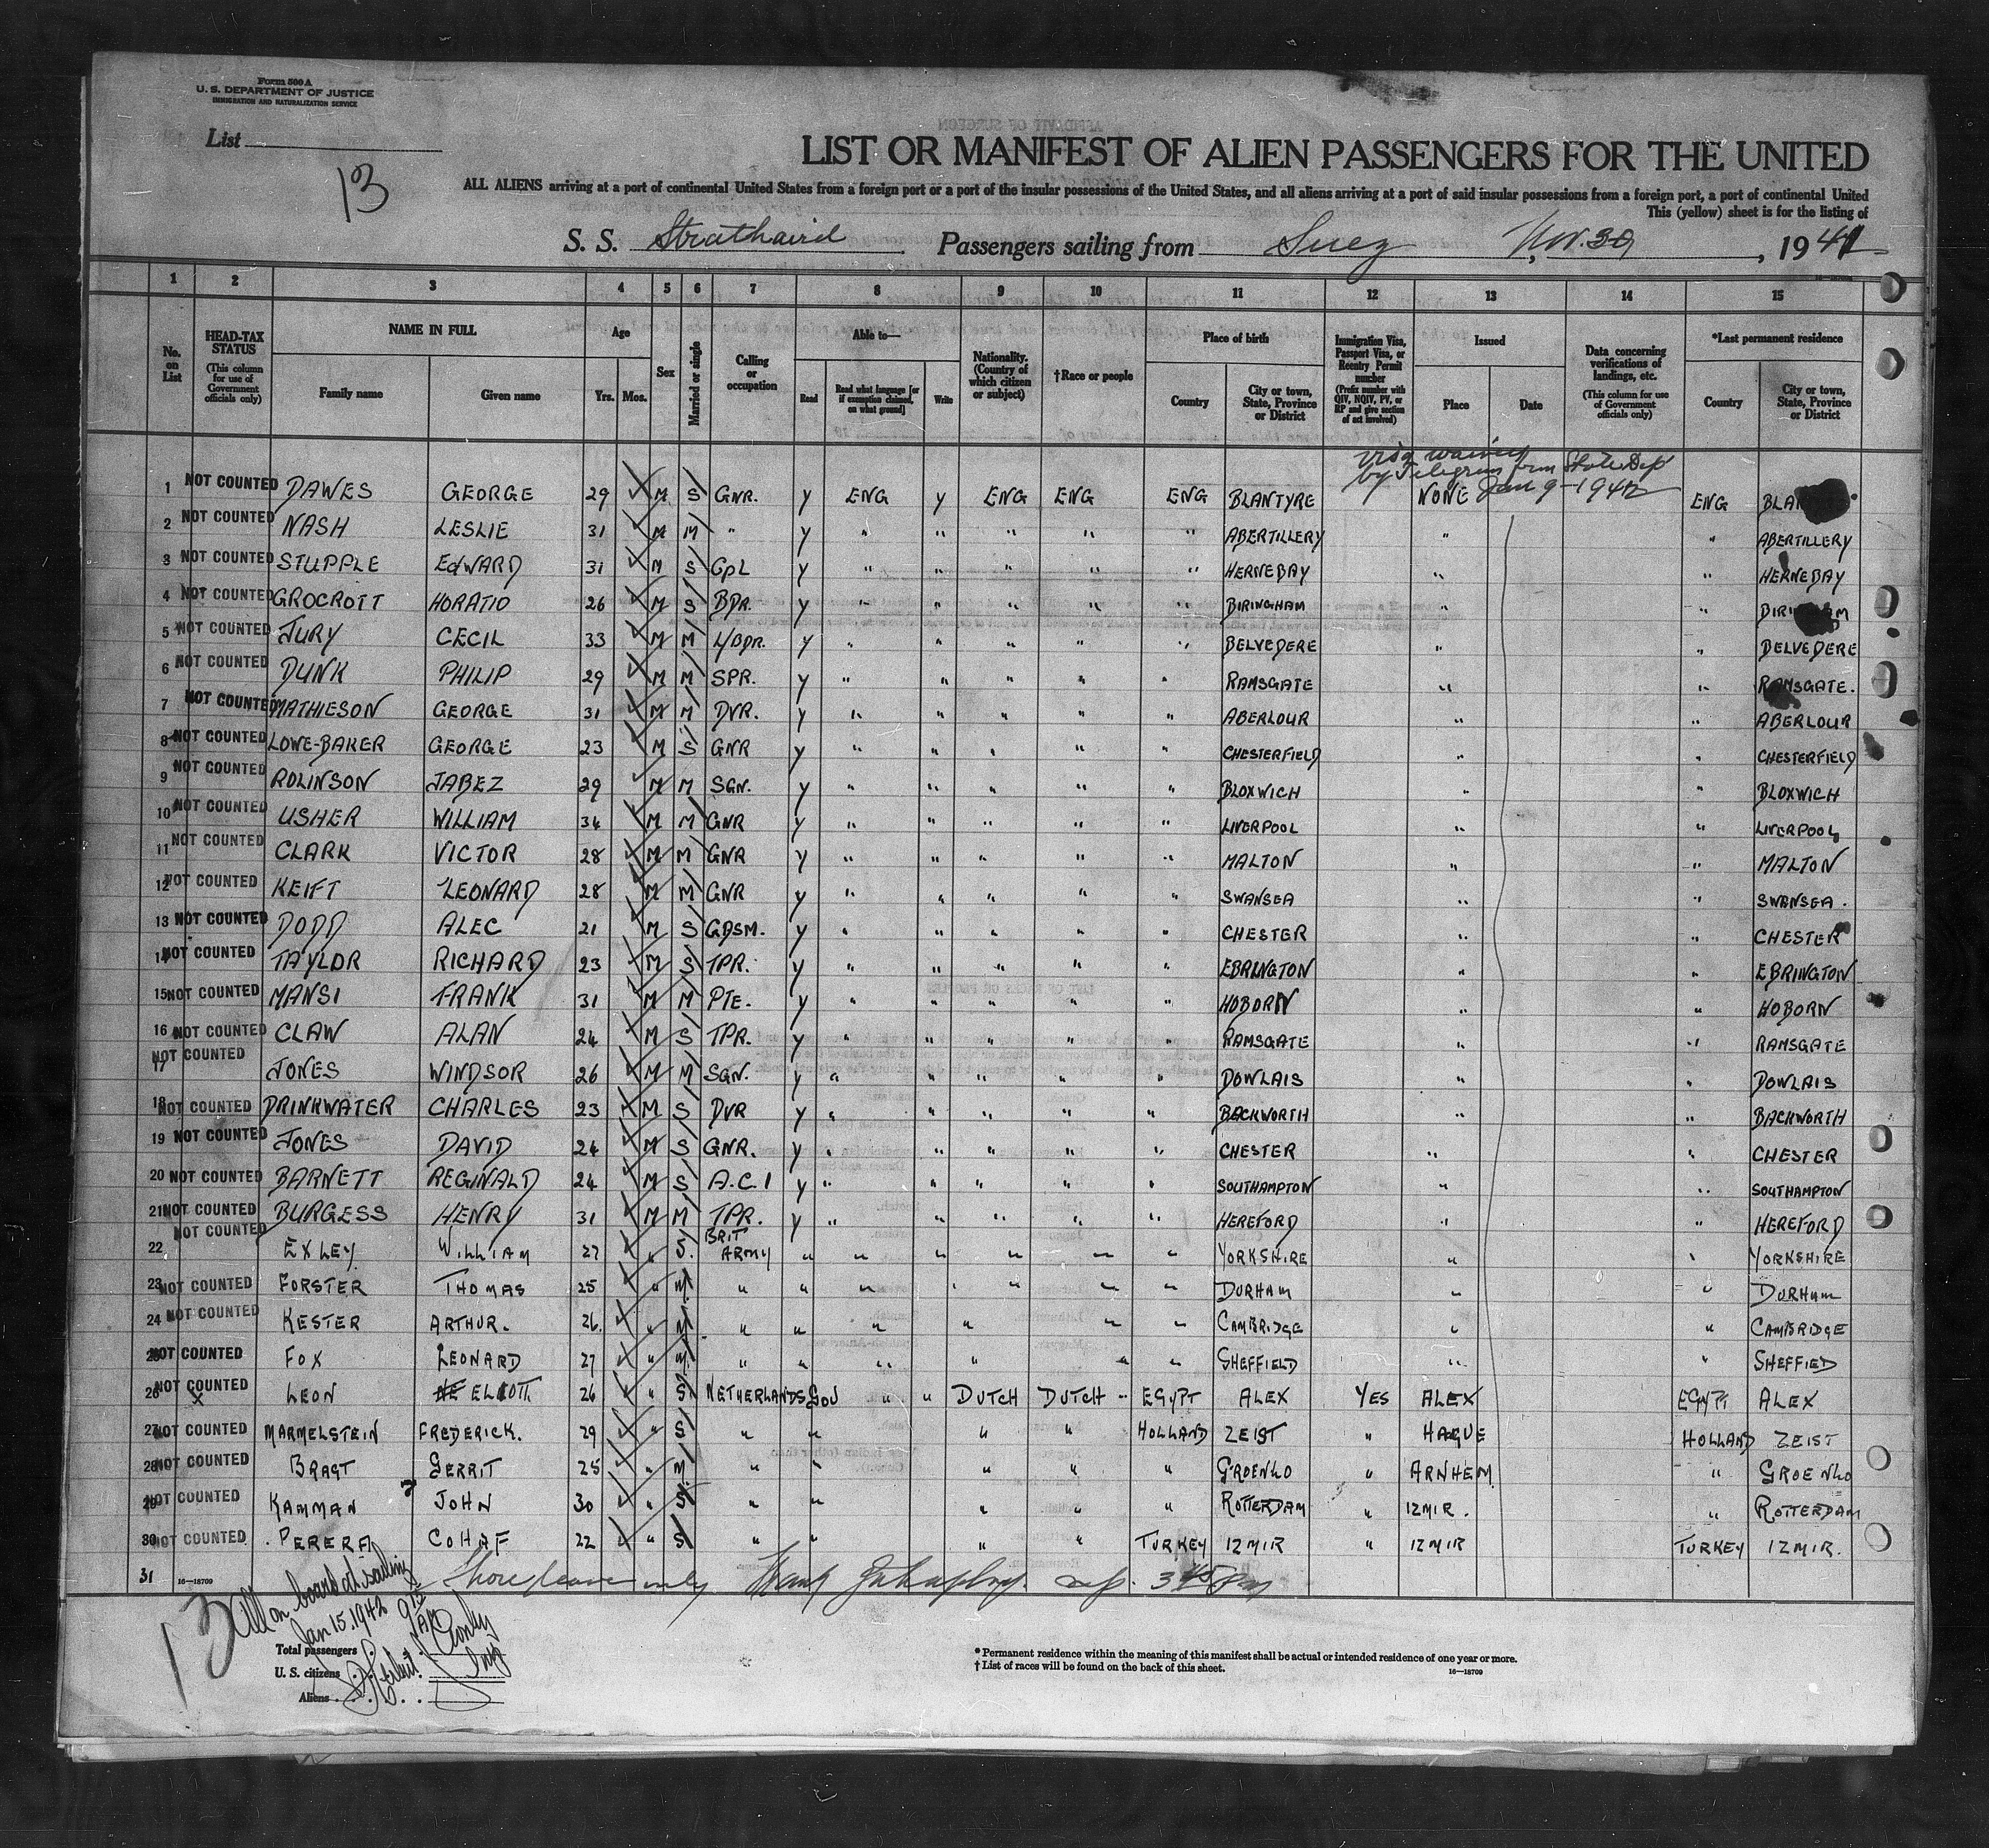 Form 500 A
U. S. DEPARTMENT OF JUSTICE
IMMIGRATION AND NATURALIZATION SERVICE
List
13
LIST OR MANIFEST OF ALIEN PASSENGERS FOR THE UNITED
ALL ALIENS arriving at a port of continental United States from a foreign port or a port of the insular possessions of the United States, and all aliens arriving at a port of said insular possessions from a foreign port, a port of continental United
This (yellow) sheet is for the listing of
S. S. Strathaird Passengers sailing from Suez, Nov. 30, 1941
1 2 3 4 5 6 7 8 9 10 11 12 13 14 15
No. on List
HEAD-TAX STATUS (This column for use of Government officials only)
NAME IN FULL Family name Given name
Age Yrs. Mos.
Sex
Married or single
Calling or occupation
Able to— Read Read what language [or if exemption claimed, on what ground] Write
Nationality. (Country of which citizen or subject)
†Race or people
Place of birth Country City or town, State, Province or District
Immigration Visa, Passport Visa, or Reentry Permit number (Prefix number with QIV, NQIV, PV, or RP and give section of act involved)
Issued Place Date
Data concerning verifications of landings, etc. (This column for use of Government officials only)
*Last permanent residence Country City or town, State, Province or District
visa waived
by Telegram from State Dep
Jan 9-1942
1 NOT COUNTED DAWES GEORGE 29 M S GNR. Y ENG Y ENG ENG ENG BLANTYRE NONE ENG
2 NOT COUNTED NASH LESLIE 31 M M " Y " " " " " ABERTILLERY " " ABERTILLERY
3 NOT COUNTED STUPPLE EDWARD 31 M S CPL Y " " " " " HERNEBAY " " HERNEBAY
4 NOT COUNTED GROCROTT HORATIO 26 M S BDR. Y " " " " " BIRINGHAM "
5 NOT COUNTED JURY CECIL 33 M M L/BDR. Y " " " " " BELVEDERE " " BELVEDERE
6 NOT COUNTED DUNK PHILIP 29 M M SPR. Y " " " " " RAMSGATE " " RAMSGATE.
7 NOT COUNTED MATHIESON GEORGE 31 M M DVR. Y " " " " " ABERLOUR " " ABERLOUR
8 NOT COUNTED LOWE-BAKER GEORGE 23 M S GNR Y " " " " " CHESTERFIELD " " CHESTERFIELD
9 NOT COUNTED ROLINSON JABEZ 29 M M SGN. Y " " " " " BLOXWICH " " BLOXWICH
10 NOT COUNTED USHER WILLIAM 34 M M GNR Y " " " " " LIVERPOOL " " LIVERPOOL
11 NOT COUNTED CLARK VICTOR 28 M M GNR Y " " " " " MALTON " " MALTON
12 NOT COUNTED KEIFT LEONARD 28 M M GNR Y " " " " " SWANSEA " " SWANSEA.
13 NOT COUNTED DODD ALEC 21 M S GDSM. Y " " " " " CHESTER " " CHESTER
14 NOT COUNTED TAYLOR RICHARD 23 M S TPR. Y " " " " " EBRINGTON " " EBRINGTON
15 NOT COUNTED MANSI FRANK 31 M M PTE. Y " " " " " HOBORN " " HOBORN
16 NOT COUNTED CLAW ALAN 24 M S TPR. Y " " " " " RAMSGATE " " RAMSGATE
17 NOT COUNTED JONES WINDSOR 26 M M SGN. Y " " " " " DOWLAIS " " DOWLAIS
18 NOT COUNTED DRINKWATER CHARLES 23 M S DVR Y " " " " " BACKWORTH " " BACKWORTH
19 NOT COUNTED JONES DAVID 24 M S GNR. Y " " " " " CHESTER " " CHESTER
20 NOT COUNTED BARNETT REGINALD 24 M S A.C.1 Y " " " " " SOUTHAMPTON " " SOUTHAMPTON
21 NOT COUNTED BURGESS HENRY 31 M M TPR. Y " " " " " HEREFORD " " HEREFORD
22 NOT COUNTED EXLEY WILLIAM 27 " S. BRIT ARMY " " " " " " YORKSHIRE " " YORKSHIRE
23 NOT COUNTED FORSTER THOMAS 25 " M " " " " " " " DURHAM " " DURHAM
24 NOT COUNTED KESTER ARTHUR. 26. " M " " " " " " CAMBRIDGE " " CAMBRIDGE
25 NOT COUNTED FOX LEONARD 27 " M. " " " " " " SHEFFIELD " " SHEFFIED
26 NOT COUNTED X LEON ELIOTT 26 " S NETHERLANDS GOV " " DUTCH DUTCH EGYPT ALEX YES ALEX EGYPT ALEX
27 NOT COUNTED MARMELSTEIN FREDERICK. 29 " S " " " " HOLLAND ZEIST " HAGUE HOLLAND ZEIST
28 NOT COUNTED BRAGT GERRIT 25 " M. " " " " " GROENLO " ARNHEM " GROENLO
29 NOT COUNTED KAMMAN JOHN 30 " S " " " " " ROTTERDAM " IZMIR. " ROTTERDAM
30 NOT COUNTED PERERA COHAF 22 " S " " " " TURKEY IZMIR " IZMIR TURKEY IZMIR.
31 16—18709
Shore leave only 3 45 pm
13 All on board at sailing
Jan 15. 1942
Total passengers
U. S. citizens
Aliens
* Permanent residence within the meaning of this manifest shall be actual or intended residence of one year or more.
† List of races will be found on the back of this sheet.
16—18709